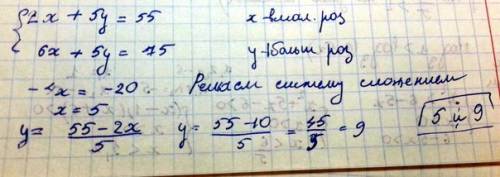 2x + 5y = 55 x - в мал. роз
6x + 5y = 75 y - 1 больш. роз
-4x = -20. Решаем систему сложением
x = 5
y = (55 - 2x)/5 y = (55 - 10)/5 = 45/5 = 9 5 и 9